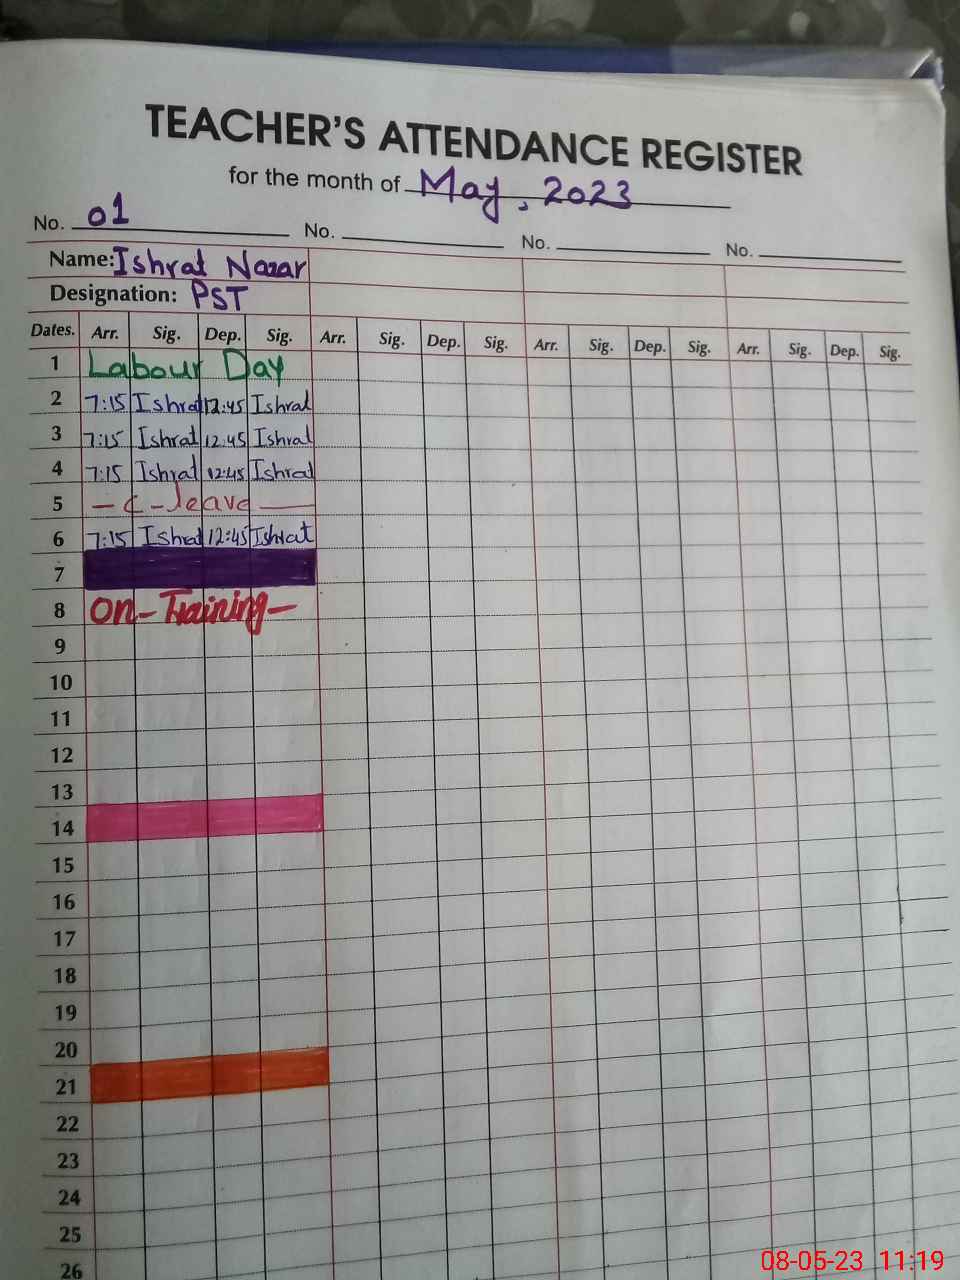 TEACHER'S ATTENDANCE REGISTER
for the month of May, 2023
No. 01 No. No. No.
Name: Ishrat Nazar
Designation: PST
Dates. Arr. Sig. Dep. Sig. Arr. Sig. Dep. Sig. Arr. Sig. Dep. Sig. Arr. Sig. Dep. Sig.
1 Labour Day
2 7:15 Ishrat 12:45 Ishrat
3 7:15 Ishrat 12:45 Ishrat
4 7:15 Ishrat 12:45 Ishrat
5 — C — leave —
6 7:15 Ishrat 12:45 Ishrat
7
8 On - Training -
9
10
11
12
13
14
15
16
17
18
19
20
21
22
23
24
25
26
08-05-23 11:19